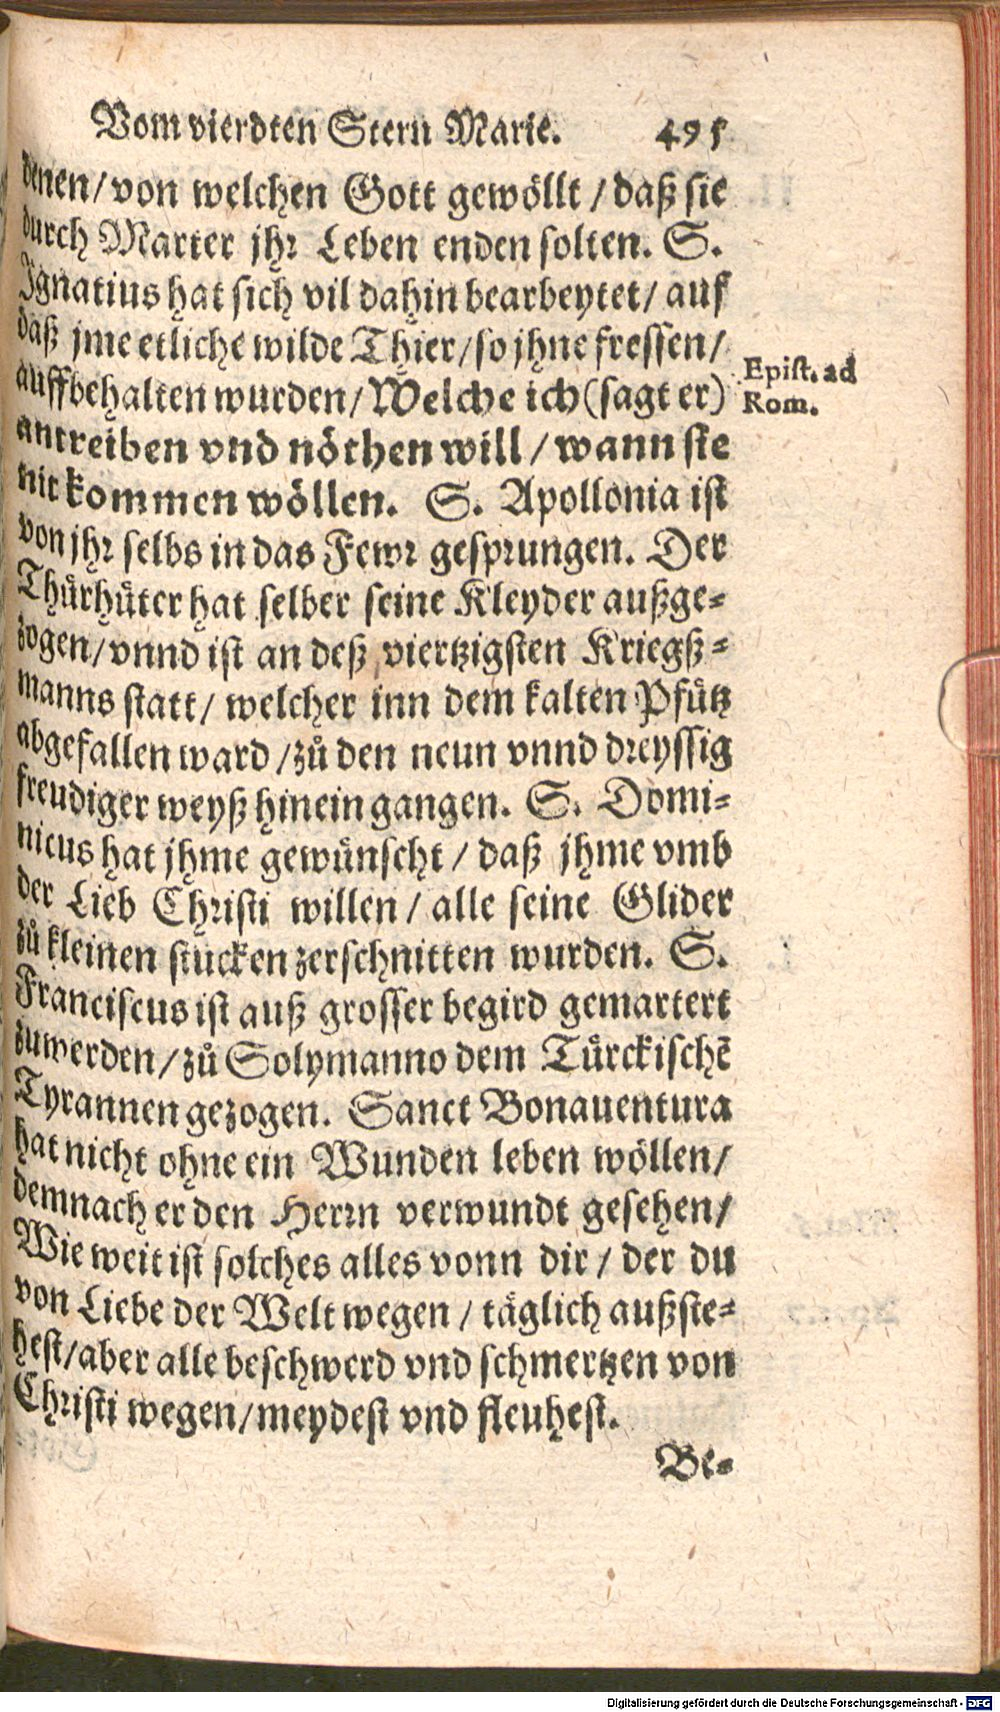 Vom vierdten Stern Marie. 495
denen/ von welchen Gott gewöllt / daß sie
durch Marter jhr Leben enden solten. S.
Ignatius hat sich vil dahin bearbeytet/ auf
daß jme etliche wilde Thier/ so jhne fressen/
auffbehalten wurden/ Welche ich (sagt er)
Epist. ad
Rom.
antreiben vnd nöthen will / wann sie
nit kommen wöllen. S. Apollonia ist
von jhr selbs in das Fewr gesprungen. Der
Thürhüter hat selber seine Kleyder außge-
zogen/ vnnd ist an deß viertzigsten Kriegß-
manns statt/ welcher inn dem kalten Pfütz
abgefallen ward / zů den neun vnnd dreyssig
freudiger weyß hinein gangen. S. Domi-
nicus hat jhme gewünscht / daß jhme vmb
der Lieb Christi willen / alle seine Glider
zů kleinen stucken zerschnitten wurden. S.
Franciscus ist auß grosser begird gemartert
zuwerden/ zů Solymanno dem Türckischē
Tyrannen gezogen. Sanct Bonauentura
hat nicht ohne ein Wunden leben wöllen/
demnach er den Herrn verwundt gesehen/
Wie weit ist solches alles vonn dir / der du
von Liebe der Welt wegen / täglich außste-
hest/ aber alle beschwerd vnd schmertzen von
Christi wegen/ meydest vnd fleuhest.
Be-
Digitalisierung gefördert durch die Deutsche Forschungsgemeinschaft - DFG